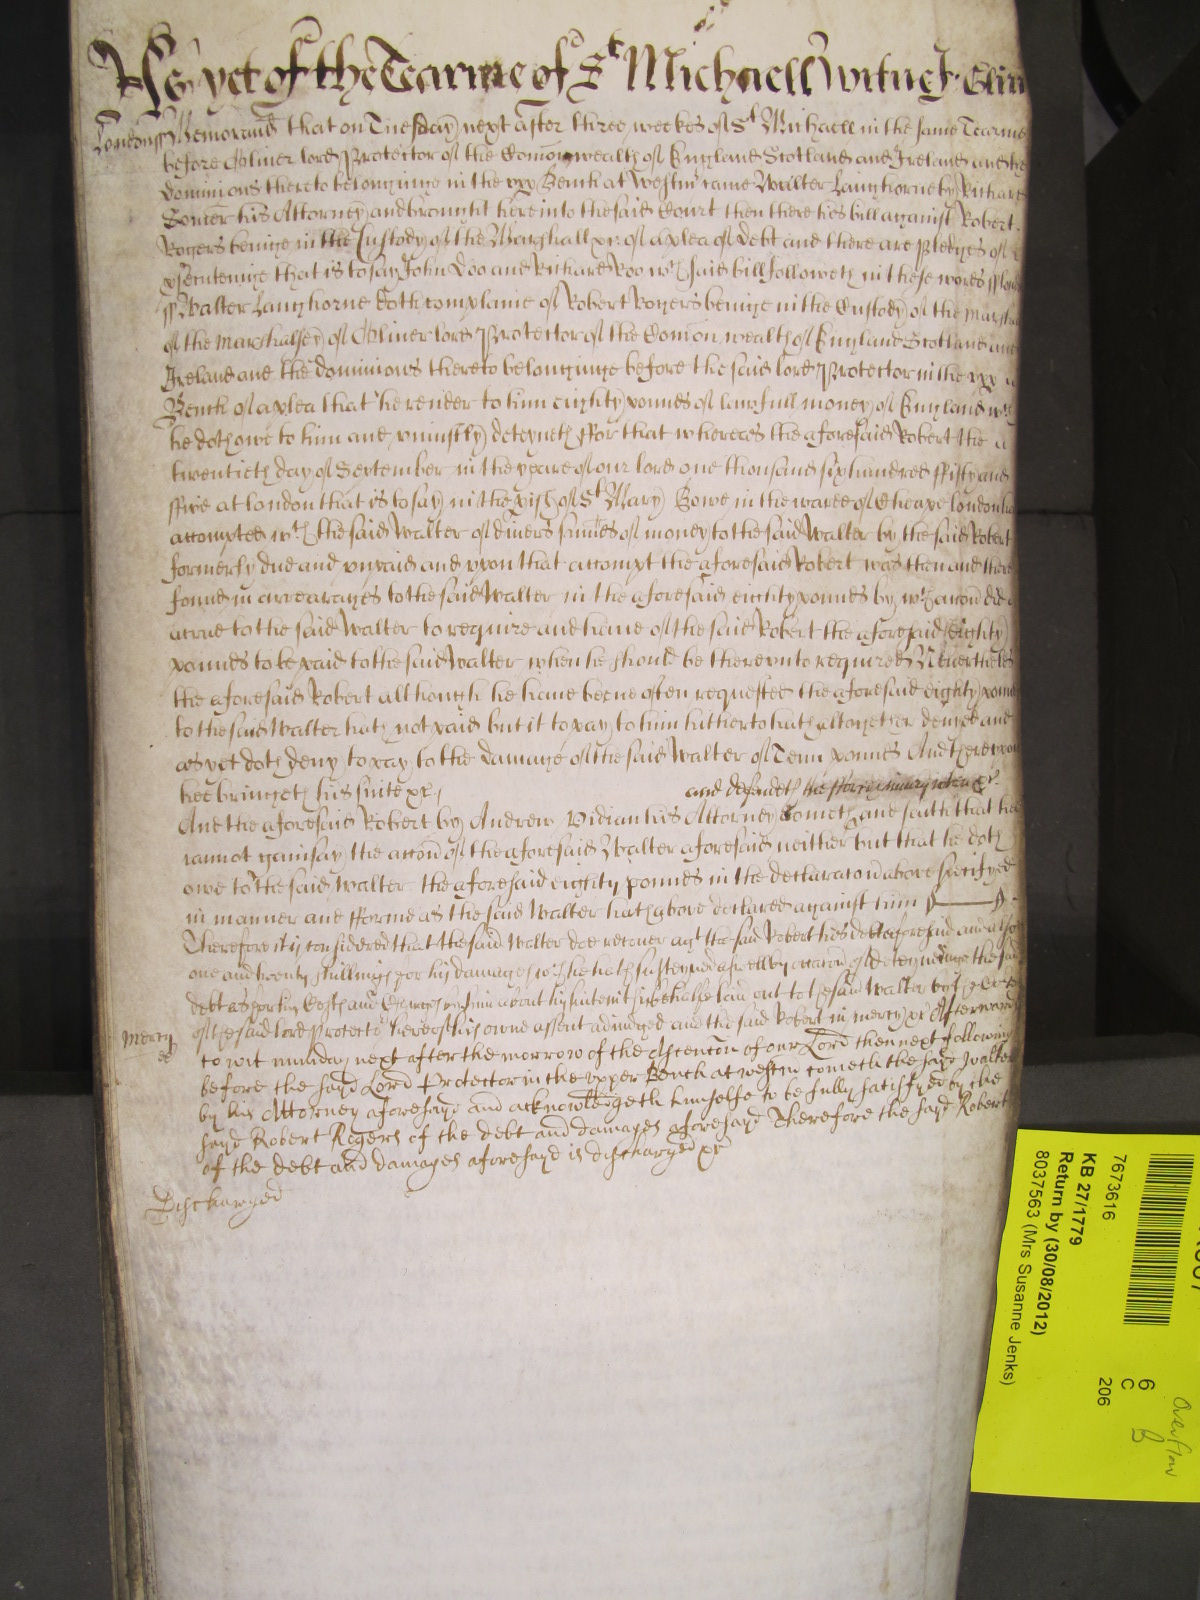 As yet of the Tearme of St Michaell witnes
London ss Memorand that on Tuesday next after three weekes of St Michaell in the same Tearme
before Oliver lord Protector of the Comonwealth of England Scotland and Ireland and the
dominions thereto belonginge in the vpp Bench at Westm came Walter Langhorne by Richard
his Attorney and brought here into the said Court then there his bill against Robert
Rogers beinge in the Custody of the Marshall &c of a plea of debt and there are pledges of
psecutinge that is to say John Doo and Richard Roo wch said bill followeth in these words
ss Walter Langhorne doth complaine of Robert Rogers beinge in the Custody of the
of the Marshalsey of Oliver lord Protector of the Comon wealth of England Scotland and
Ireland and the dominions thereto belonginge before the said lord Protector in the vpp
Bench of a plea that he render to him eighty pounds of lawfull money of England wch
he doth owe to him and vniustly deteyneth ffor that whereas the aforesaid Robert the
twentieth day of September in the yeare of our lord one thousand six hundred ffifty and
ffive at london that is to say in the pish of St Mary Bowe in the warde of Cheape london
accompted wth the said Walter of divers sumes of money to the said Walter by the said Robert
formerly due and vnpaid and vpon that accompt the aforesaid Robert was then and there
found in arrearages to the said Walter in the aforesaid eighty pounds by wch accon did
acrue to the said Walter to require and have of the said Robert the aforesaid Eighty
pounds to be paid to the said Walter when he should be therevnto required Neverthelesse
the aforesaid Robert although he have beene often requested the aforesaid eighty
to the said Walter hath not paid but it to pay to him hitherto hath altogether denyed and
as yet doth deny to pay to the damage of the said Walter of Tenn pounds And therevpon
hee bringeth his suite &c
and defendeth the fforce iniury when &c
And the aforesaid Robert by Andrew Vidian his Attorney Cometh and saith that hee
cannot gainsay the accon of the aforesaid Walter aforesaid neither but that he doth
owe to the said Walter the aforesaid eighty pounds in the declaracon above specifyed
in manner and fforme as the said Walter hath above declared against him
Therefore it is considered that the said Walter doe recover agt the said Robert his debt aforesaid and also
one and twenty shillings for his damages wch he hath susteyned aswell by occacon of deteyneinge the said
debt as for his Costs and Charges by him about his suite in this behalfe laid out to the said Walter by the Court
of the said lord Protector here of his owne assent adiudged and the said Robert in mercy &c Afterwards
Mercy
to wit munday next after the morrow of the Ascencon of our Lord then next following
before the sayd Lord Protector in the vpper Bench at westm cometh the sayd Walter
by his Attorney aforesayd and acknowledgeth himselfe to be fully satisfyed by the
sayd Robert Rogers of the debt and damages aforesayd Therefore the sayd Robert
of the debt and damages aforesayd is discharged &c
Discharged
7673616
KB 27/1779
Return by (30/08/2012)
8037563 (Mrs Susanne Jenks)
6
C
206
Overflow